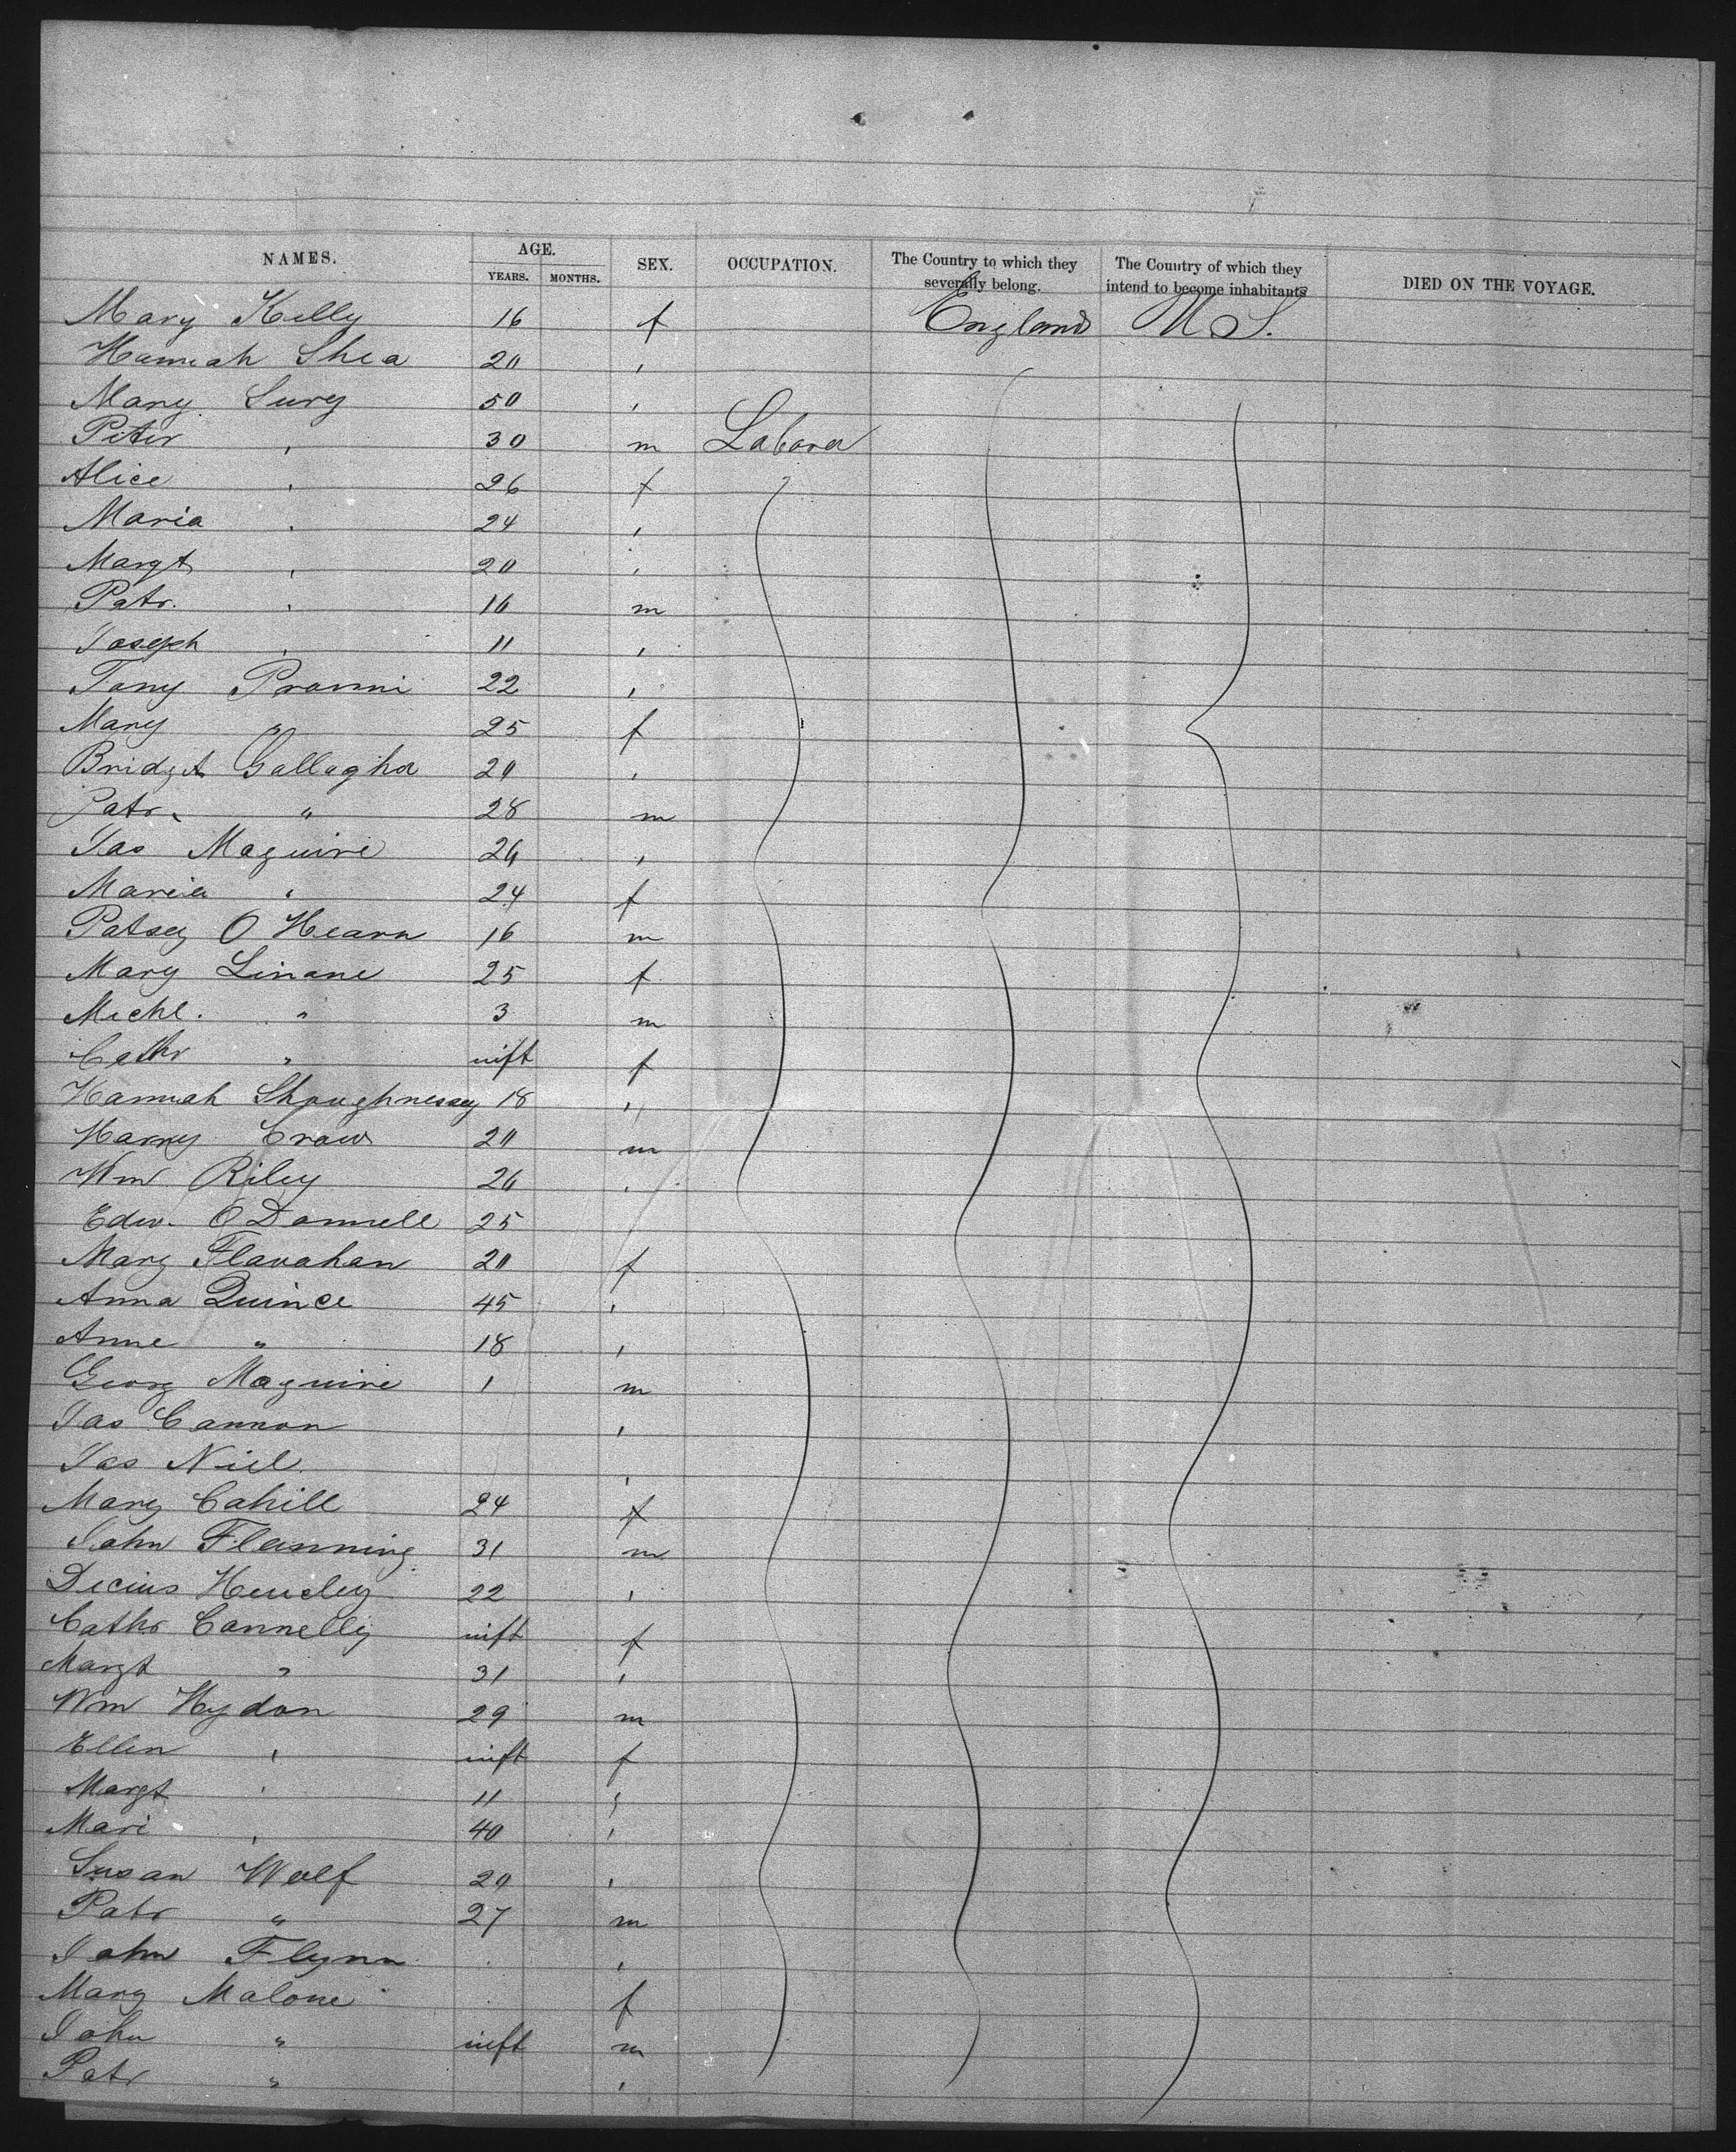 NAMES. AGE. SEX. OCCUPATION. The Country to which they severally belong. The Country of which they intend to become inhabitants DIED ON THE VOYAGE.
YEARS. MONTHS.
Mary Kelly 16 f England U S.
Hannah Shea 20 "
Mary 50 "
Peter " 30 m Labora
Alice " 26 f
Maria " 24 "
Margt " 20 "
Patr. " 16 m
Joseph " 11 "
Tany 22 "
Mary " 25 f
Bridget Gallagha 20 "
Patr. " 28 m
Jas Maguire 26 "
Maria " 24 f
Patsey O Hearn 16 m
Mary Linane 25 f
Michl. " 3 m
Cathr " inft f
Hannah Shoughnessy 18 "
Harry Crow 20 m
Wm Riley 26 "
Edw. O Donnell 25
Mary Flavahan 20 f
Anna Quince 45 "
Anne " 18 "
Georg Maguire 1 m
Jas Cannon "
Jas Niel "
Mary Cahill 24 f
John Flanning 31 m
22 "
Cathr Connelly inft f
Margt " 31 "
Wm Hydon 29 m
Ellen " inft f
Margt " 11 "
Mari " 40 "
Susan Wolf 20 "
Patr " 27 m
John Flynn "
Mary Malone f
John " inft m
Patr " "